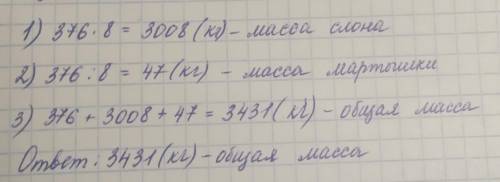 1) 376 · 8 = 3008 (кг) - масса слона
2) 376 : 8 = 47 (кг) - масса мартышки
3) 376 + 3008 + 47 = 3431 (кг) - общая масса
Ответ: 3431 (кг) - общая масса